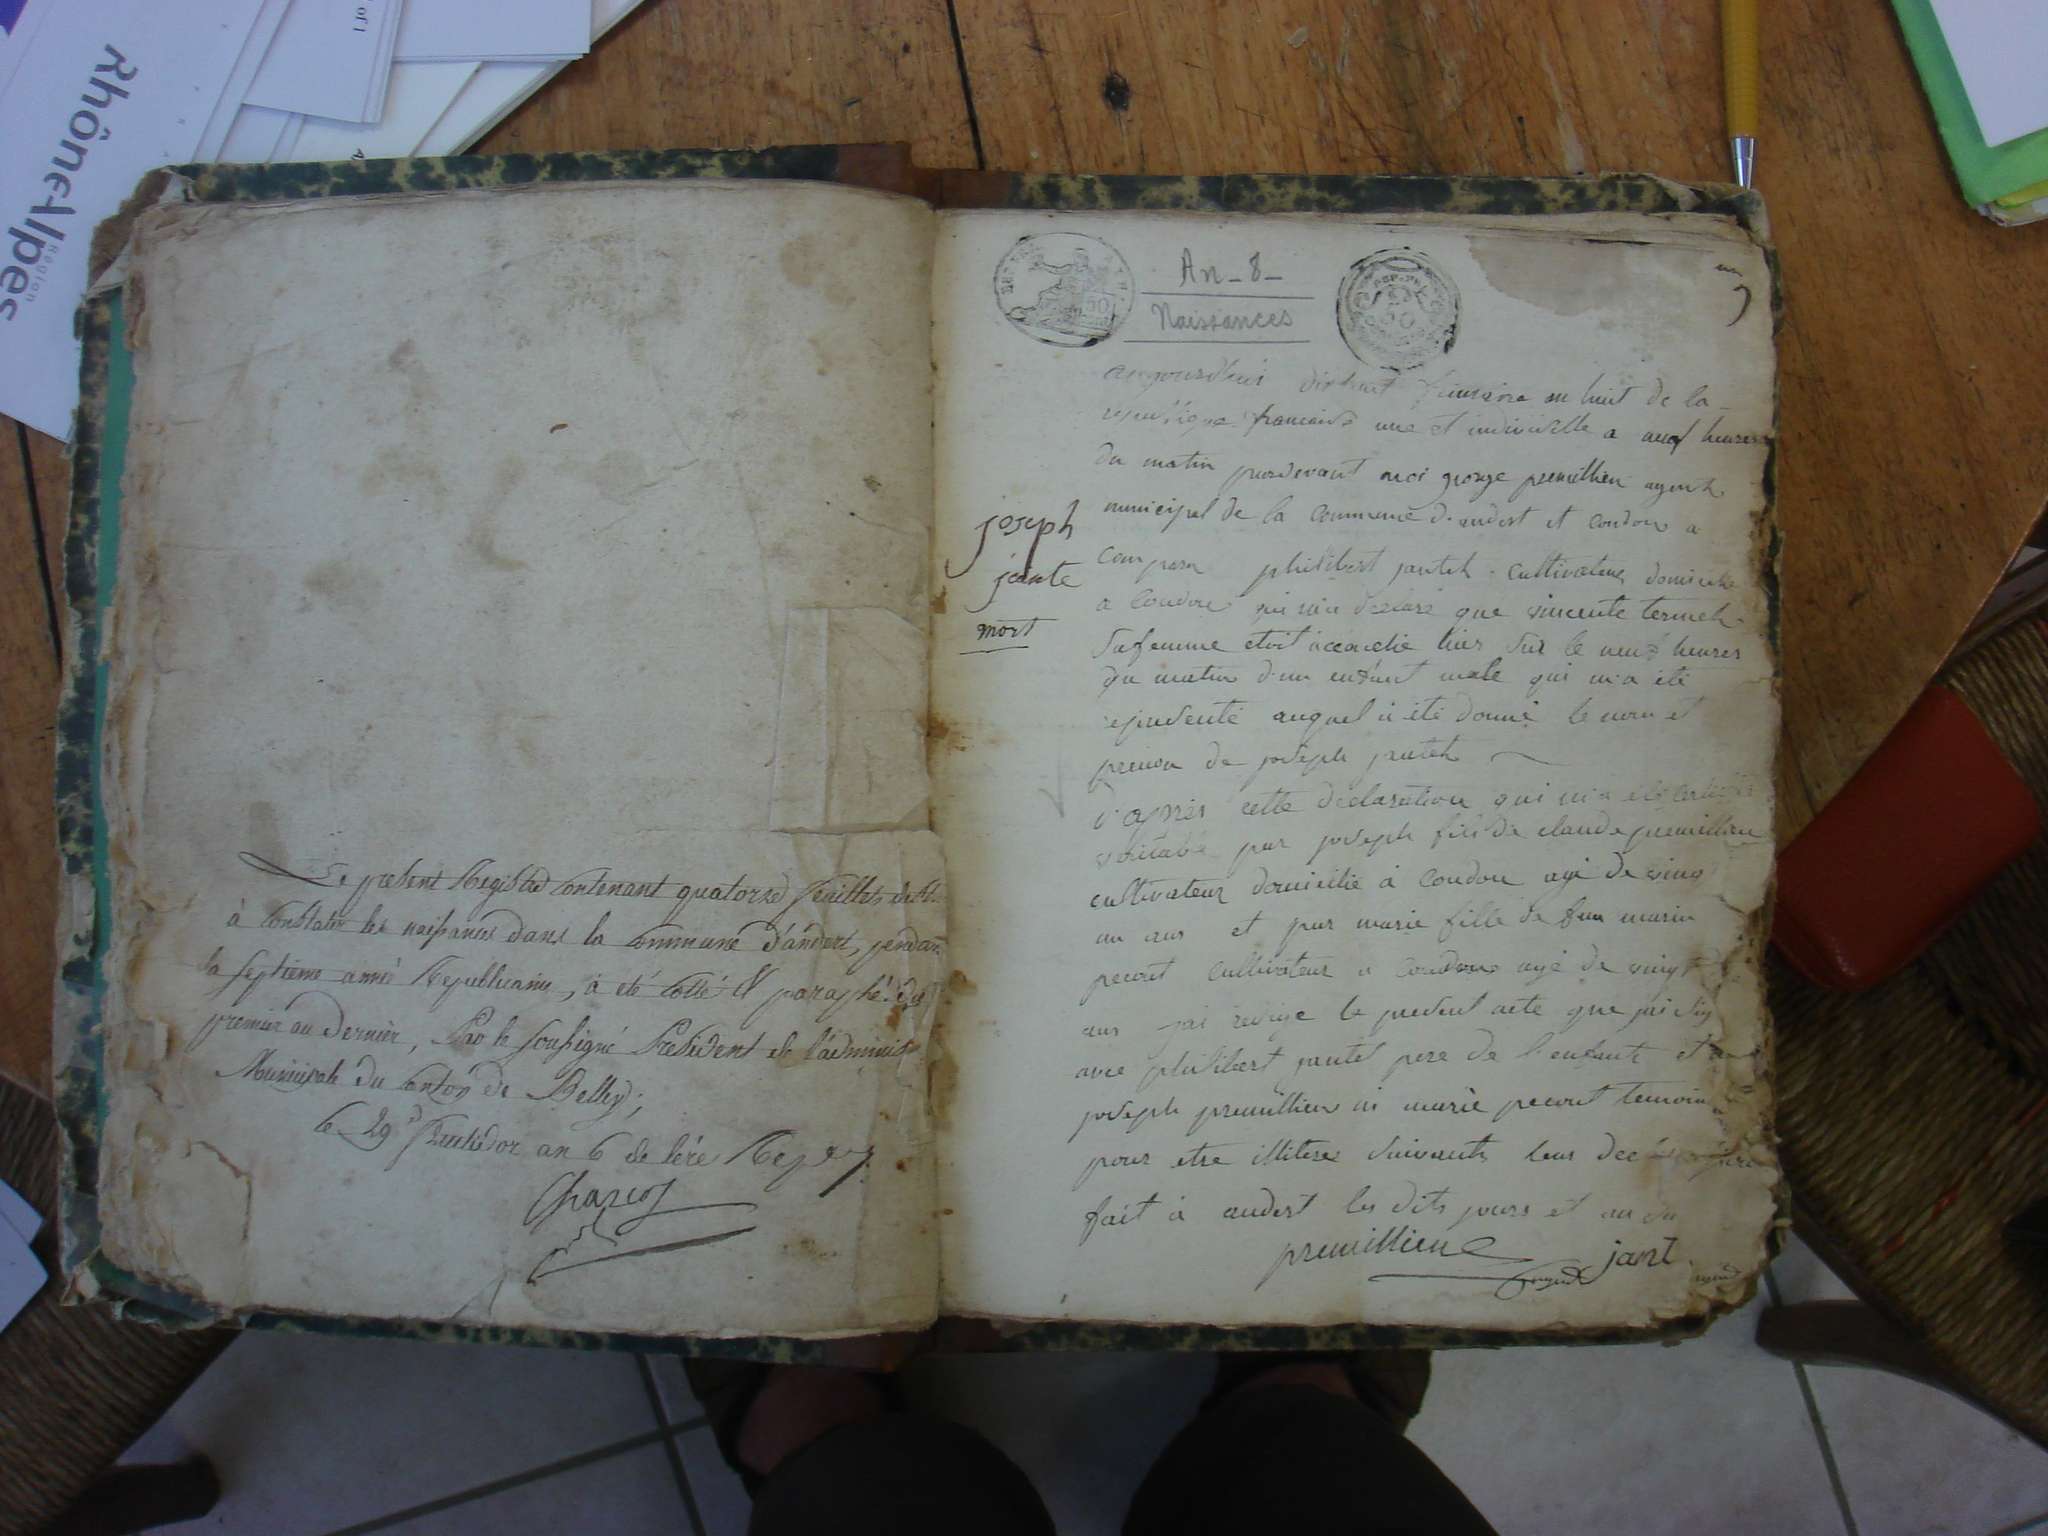 Rhône-Alpes
Région
Le present Registre Contenant quatorze feuillets
à Constater les naissances dans la Commune d'andert, pendan
la septieme année Republicaine, a été Cotté Et paraphé du
premier au dernier, Par le soussigné President de l'administ
Municipale du Canton de Belley;
le 29 fructidor an 6 de l'ére Rep
Charcot
An - 8 -
Naissances
un
joseph
jante
mort
aujourd'hui dixhuit frimaire an huit de la
republique francaise une et indivisible a neuf heures
du matin pardevant moi george premillieu agent
municipal de la commune d'andert et condon a
comparu philibert jantet cultivateur domicilié
a Condon qui m'a declaré que vincente termet
sa femme etoit accouchée hier sur le neuf heures
du matin d'un enfant male qui m'a été
representé auquel a été donné le nom et
prenon de joseph jantet
d'apres cette declaration qui m'a été certifiée
veritable par joseph fils de claude premillieu
cultivateur domicilié à condon agé de vingt
un ans et par marie fille de feu marin
pecout cultivateur a condon agé de vingt
ans jai redige le present acte que jai sig
avec philibert jantet pere de l'enfant et
joseph premillieu ni marie pecout temoin
pour etre illitéré suivants leur
fait à andert les dits jours et an
premillieu
agent
jant